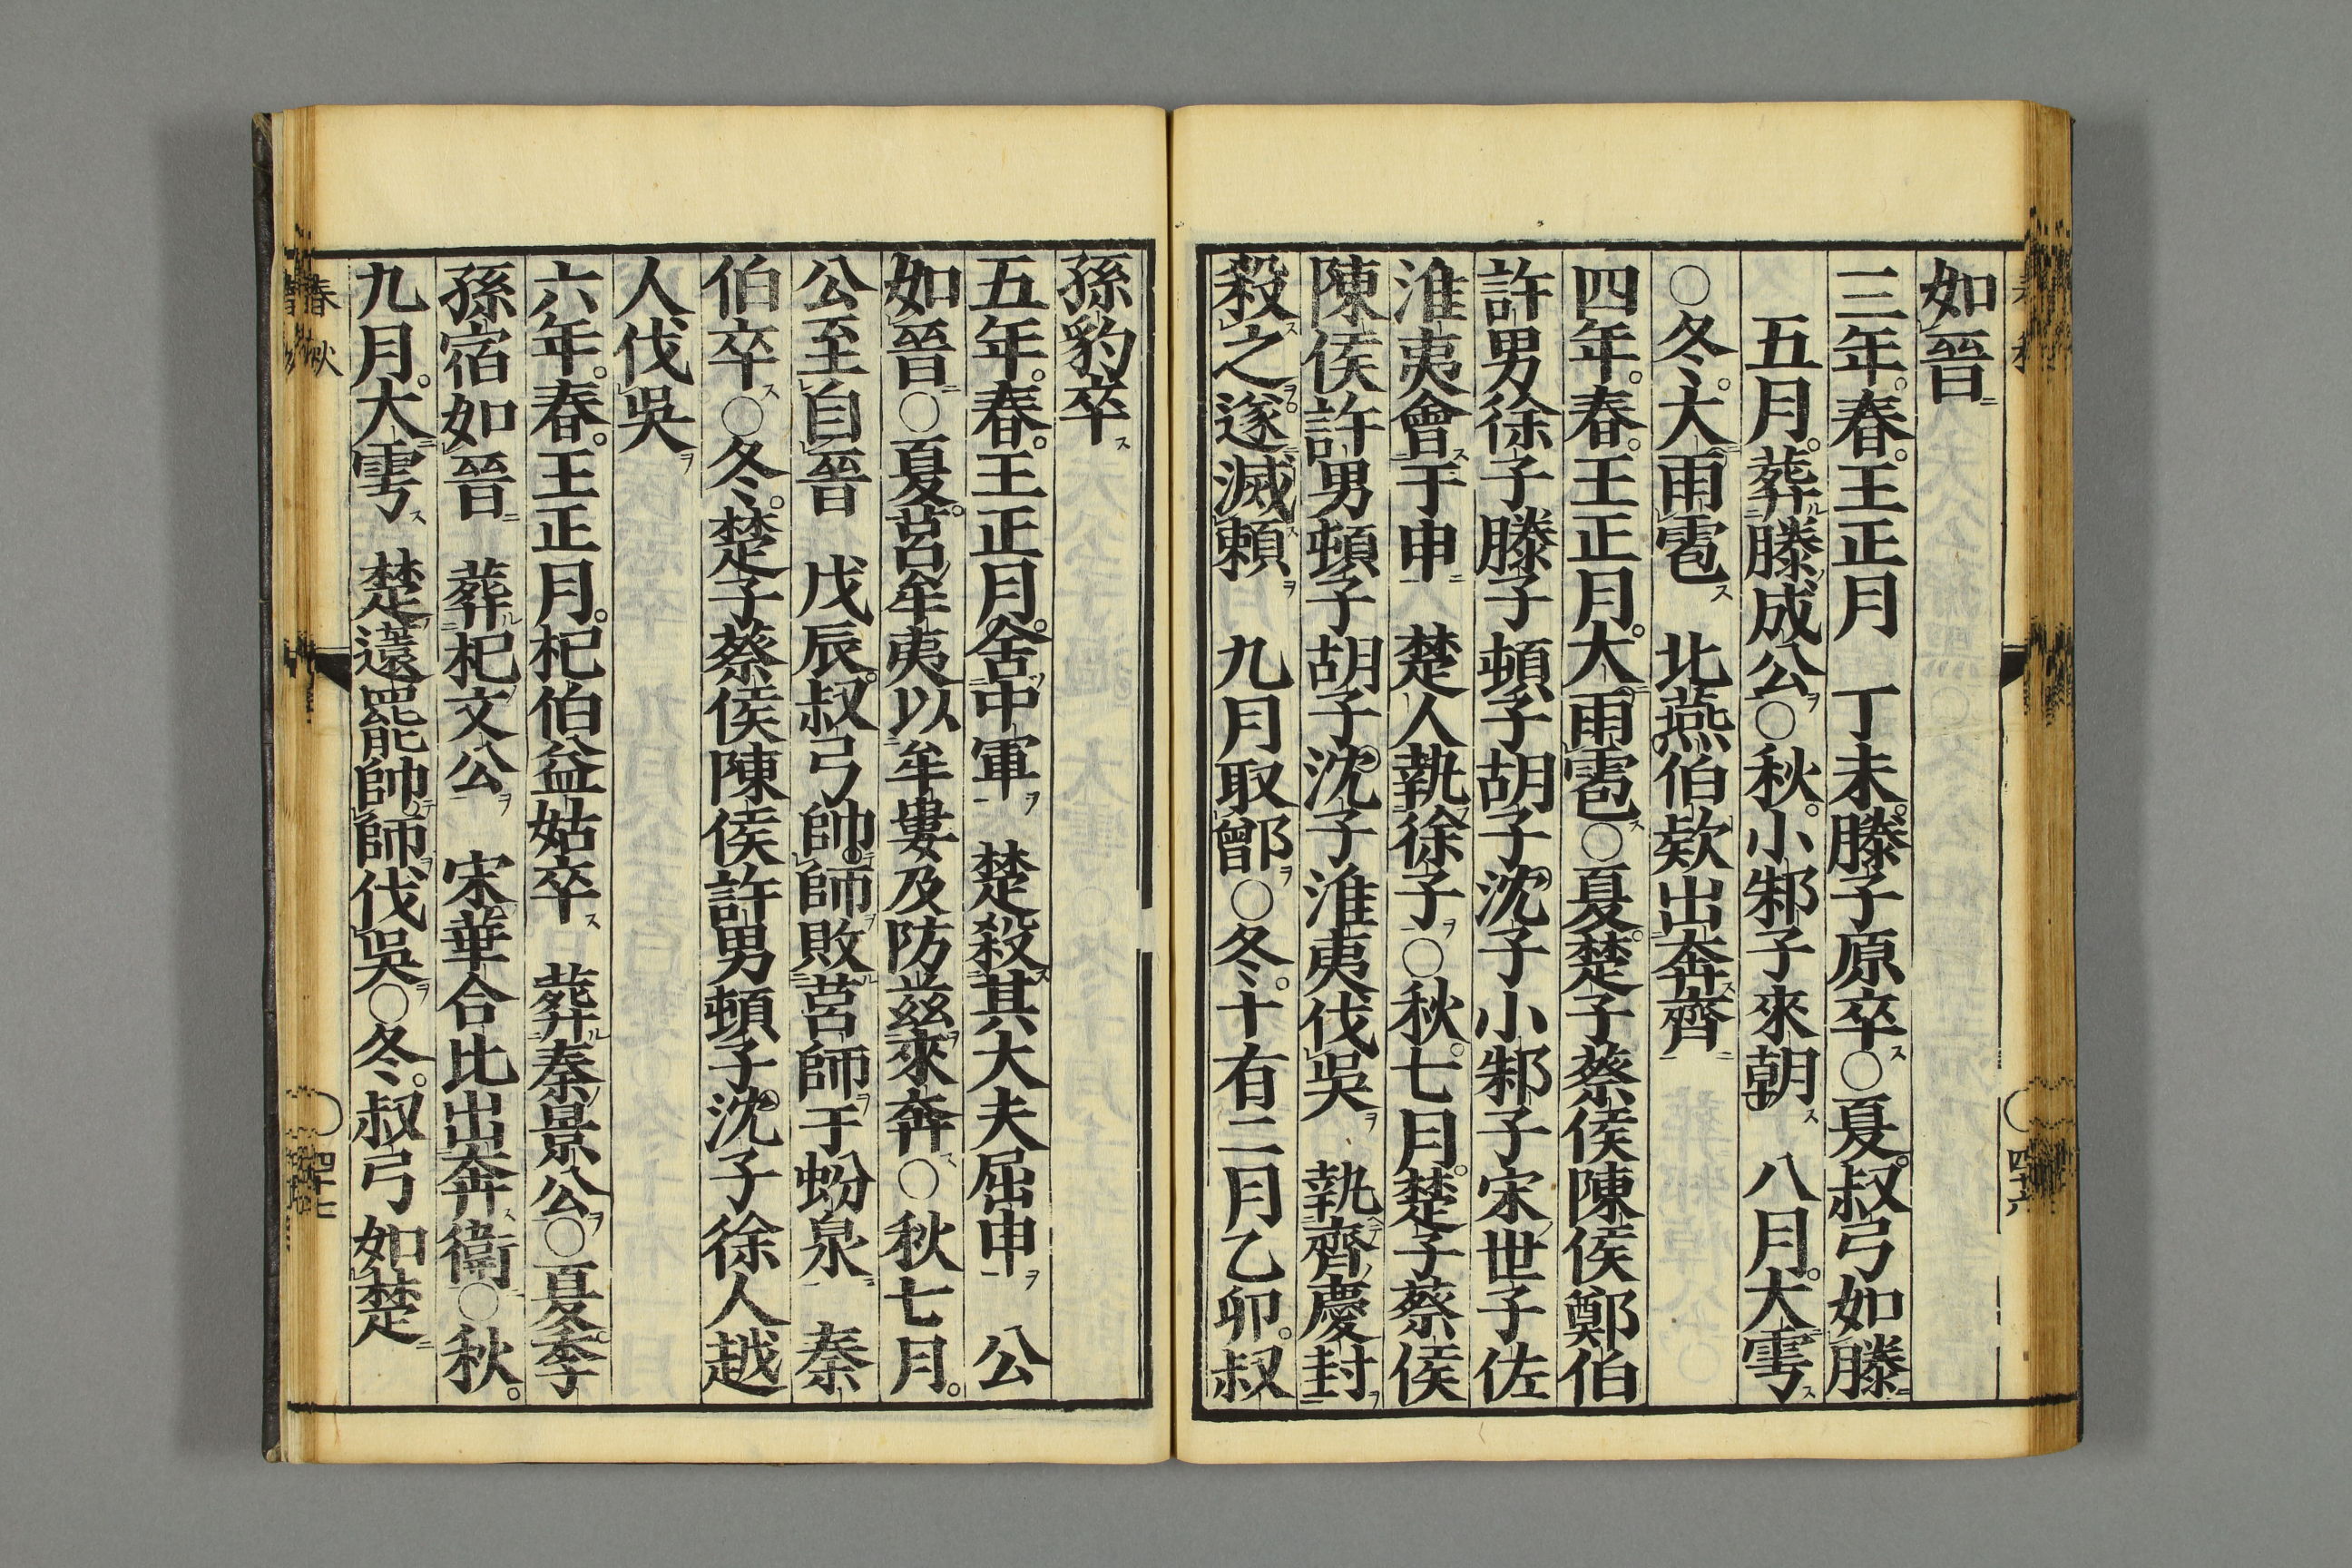 如晉
三年春王正月　丁未滕子原卒○夏叔弓如滕
五月葬滕成公○秋小邾子來朝　八月大雩
○冬大雨雹　北燕伯欵出奔齊
四年春王正月大雨雹○夏楚子蔡侯陳侯鄭伯
許男徐子滕子頓子胡子沈子小邾子宋世子佐
淮夷會于申　楚人執徐子○秋七月楚子蔡侯
陳侯許男頓子胡子沈子淮夷伐吳　執齊慶封
殺之遂滅賴　九月取鄫○冬十有二月乙卯叔
孫豹卒
五年春王正月舍中軍　楚殺其大夫屈申　公
如晉○夏莒牟夷以牟婁及防茲來奔○秋七月
公至自晉　戊辰叔弓帥師敗莒師于蚡泉　秦
伯卒○冬楚子蔡侯陳侯許男頓子沈子徐人越
人伐吳
六年春王正月杞伯益姑卒　葬秦景公○夏季
孫宿如晉　葬杞文公　宋華合比出奔衛○秋
九月大雩　楚薳罷帥師伐吳○冬叔弓如楚
春秋